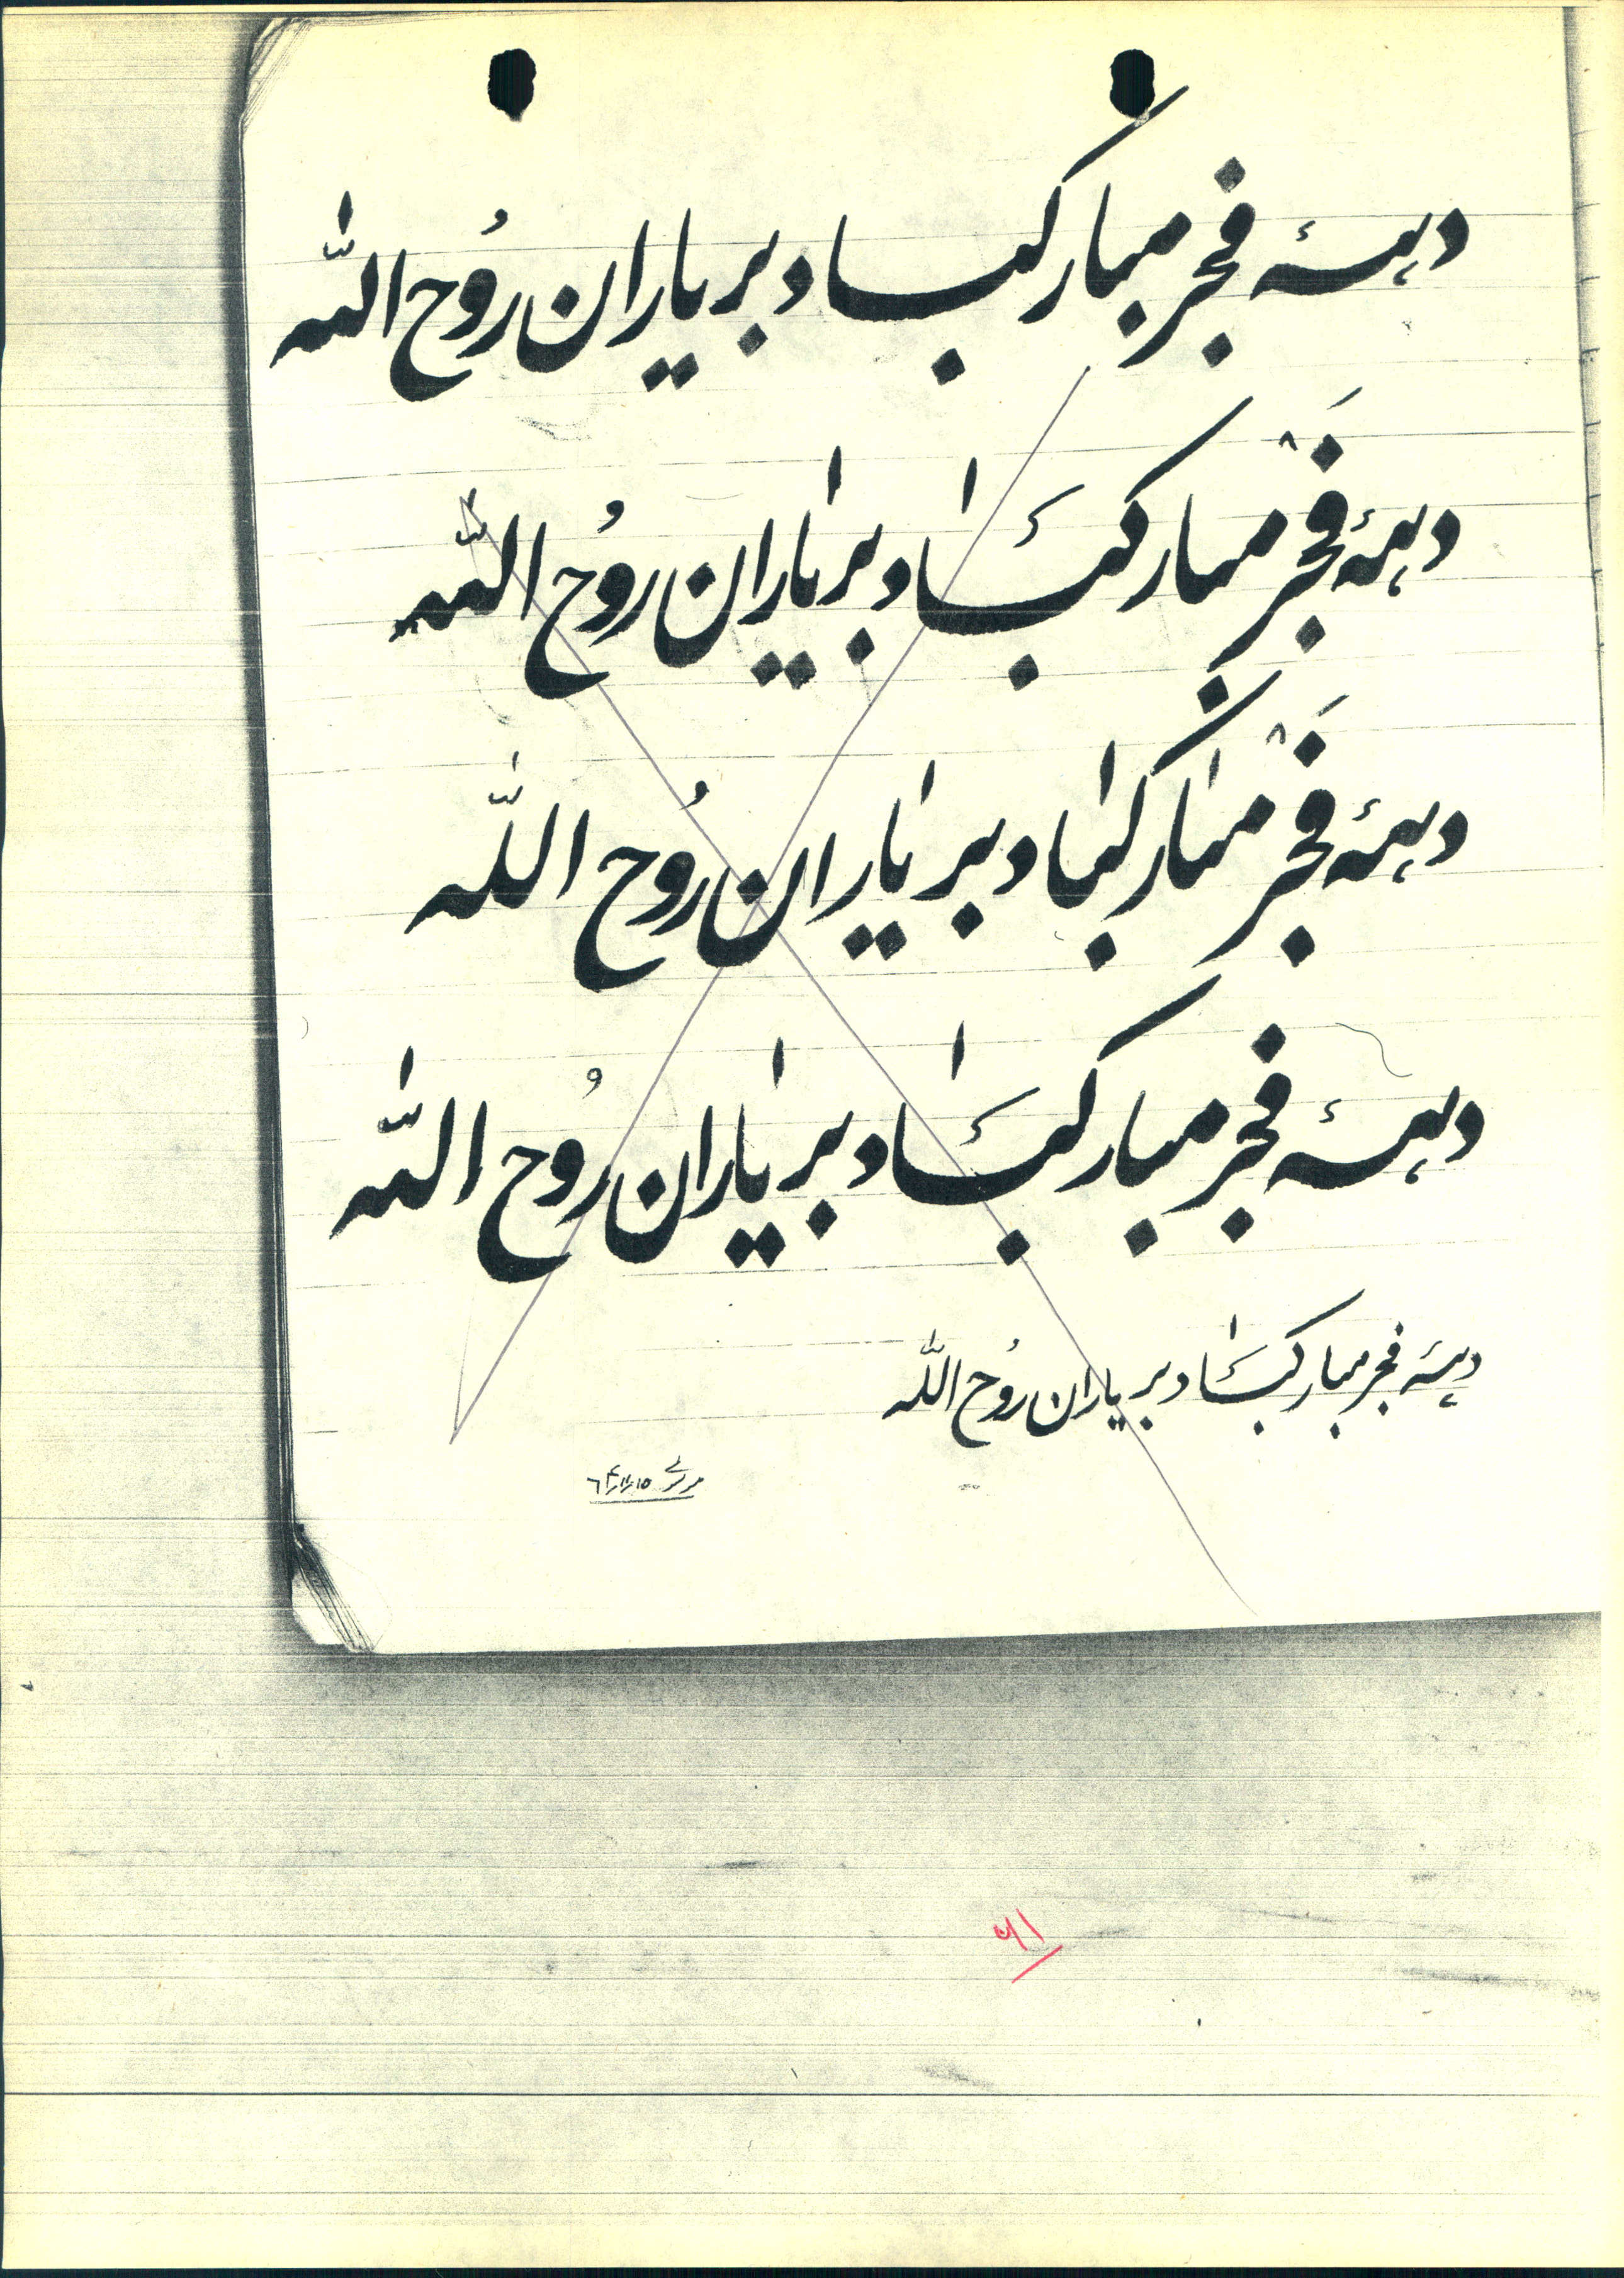 دههٔ فجر مبارکباد بر یاران رُوح اللّه
دههٔ فَجر مبارکبَاد بر یاران رُوح اللّه
دههٔ فَجر مبارکباد بر یاران رُوح اللّه
دههٔ فجر مبارکبَاد بر یاران رُوح اللّه
دههٔ فجر مبارکبَاد بر یاران رُوح اللّه